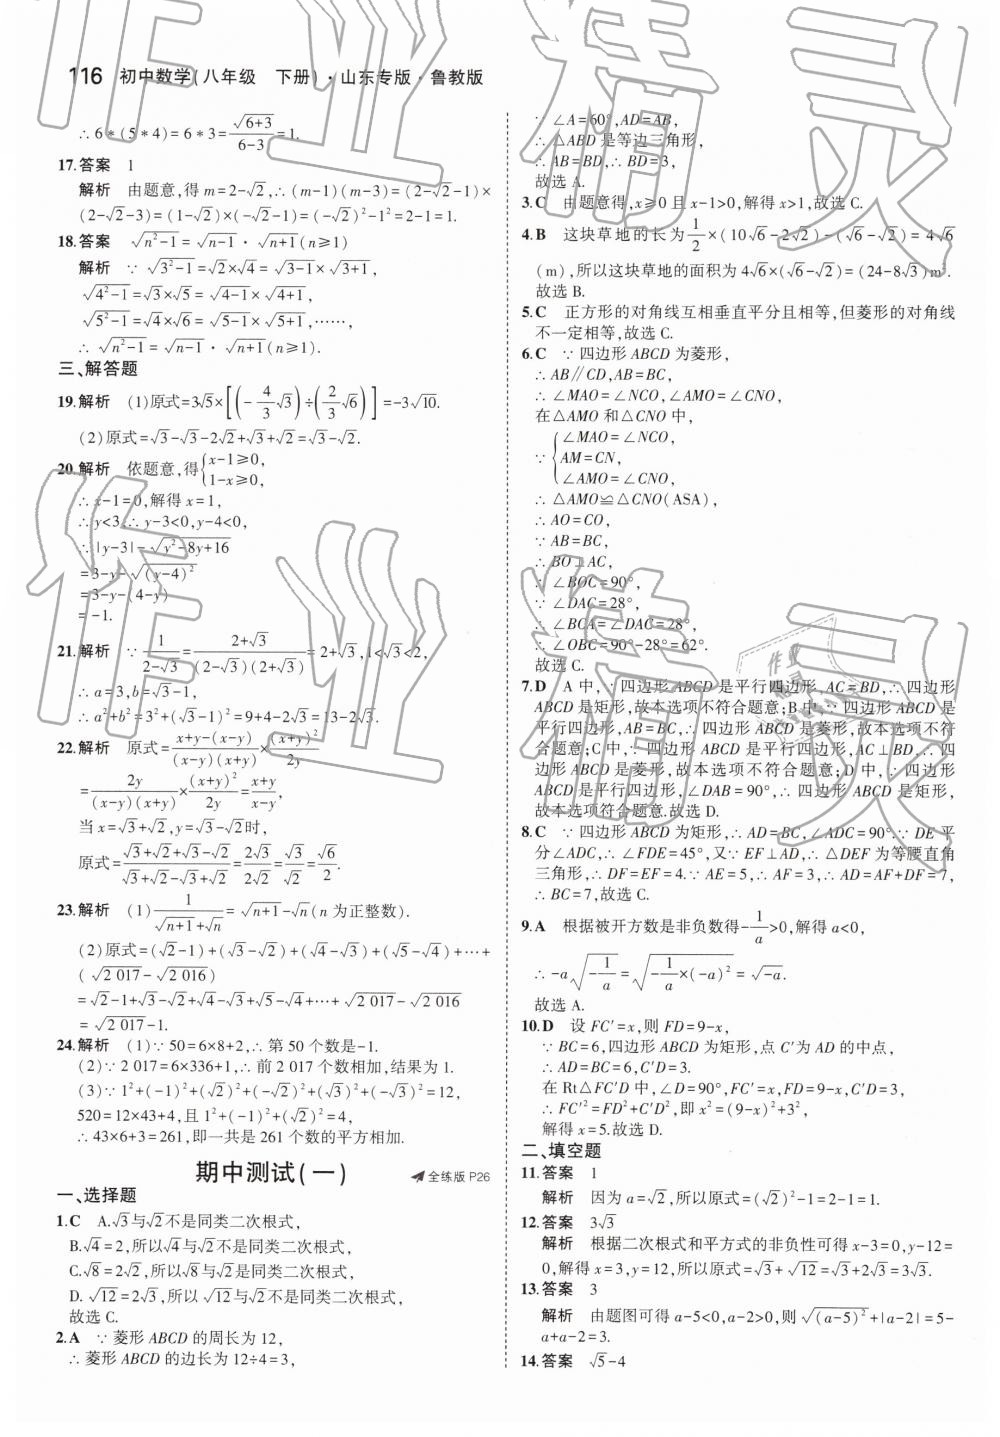 116 初中数学(八年级 下册)·山东专版·鲁教版
∴ 6*(5*4)=6*3=√(6+3)/(6-3)=1.
17.答案 1
解析 由题意,得m=2-√2,∴ (m-1)(m-3)=(2-√2-1)×
(2-√2-3)=(1-√2)×(-√2-1)=(-√2)²-1²=2-1=1.
18.答案 √(n²-1)=√(n-1)·√(n+1)(n≥1)
解析 ∵ √(3²-1)=√2×√4=√(3-1)×√(3+1),
√(4²-1)=√3×√5=√(4-1)×√(4+1),
√(5²-1)=√4×√6=√(5-1)×√(5+1),……,
∴ √(n²-1)=√(n-1)·√(n+1)(n≥1).
三、解答题
19.解析 (1)原式=3√5×[(-4/3√3)÷(2/3√6)]=-3√10.
(2)原式=√3-√3-2√2+√3+√2=√3-√2.
20.解析 依题意,得{x-1≥0, 1-x≥0,
∴ x-1=0,解得x=1,
∴ y<3,∴ y-3<0,y-4<0,
∴ |y-3|-√(y²-8y+16)
=3-y-√((y-4)²)
=3-y-(4-y)
=-1.
21.解析 ∵ 1/(2-√3)=(2+√3)/((2-√3)(2+√3))=2+√3,1<√3<2,
∴ a=3,b=√3-1,
∴ a²+b²=3²+(√3-1)²=9+4-2√3=13-2√3.
22.解析 原式=(x+y-(x-y))/((x-y)(x+y))×(x+y)²/2y
=2y/((x-y)(x+y))×(x+y)²/2y=(x+y)/(x-y),
当x=√3+√2,y=√3-√2时,
原式=(√3+√2+√3-√2)/(√3+√2-√3+√2)=2√3/2√2=√3/√2=√6/2.
23.解析 (1)1/(√(n+1)+√n)=√(n+1)-√n(n为正整数).
(2)原式=(√2-1)+(√3-√2)+(√4-√3)+(√5-√4)+…+
(√2 017-√2 016)
=√2-1+√3-√2+√4-√3+√5-√4+…+√2 017-√2 016
=√2 017-1.
24.解析 (1)∵ 50=6×8+2,∴ 第50个数是-1.
(2)∵ 2 017=6×336+1,∴ 前2 017个数相加,结果为1.
(3)∵ 1²+(-1)²+(√2)²+(-√2)²+(√3)²+(-√3)²=12,
520=12×43+4,且1²+(-1)²+(√2)²=4,
∴ 43×6+3=261,即一共是261个数的平方相加.
期中测试(一) 全练版P26
一、选择题
1.C A.√3与√2不是同类二次根式,
B.√4=2,所以√4与√2不是同类二次根式,
C.√8=2√2,所以√8与√2是同类二次根式,
D.√12=2√3,所以√12与√2不是同类二次根式,
故选C.
2.A ∵ 菱形ABCD的周长为12,
∴ 菱形ABCD的边长为12÷4=3,
∵ ∠A=60°,AD=AB,
∴ △ABD是等边三角形,
∴ AB=BD,∴ BD=3,
故选A.
3.C 由题意得,x≥0且x-1>0,解得x>1,故选C.
4.B 这块草地的长为1/2×(10√6-2√2)-(√6-√2)=4√6
(m),所以这块草地的面积为4√6×(√6-√2)=(24-8√3)m².
故选B.
5.C 正方形的对角线互相垂直平分且相等,但菱形的对角线
不一定相等,故选C.
6.C ∵ 四边形ABCD为菱形,
∴ AB∥CD,AB=BC,
∴ ∠MAO=∠NCO,∠AMO=∠CNO,
在△AMO和△CNO中,
∵ {∠MAO=∠NCO, AM=CN, ∠AMO=∠CNO,
∴ △AMO≌△CNO(ASA),
∴ AO=CO,
∵ AB=BC,
∴ BO⊥AC,
∴ ∠BOC=90°,
∵ ∠DAC=28°,
∴ ∠BCA=∠DAC=28°,
∴ ∠OBC=90°-28°=62°.
故选C.
7.D A中,∵ 四边形ABCD是平行四边形,AC=BD,∴ 四边形
ABCD是矩形,故本选项不符合题意;B中,∵ 四边形ABCD是
平行四边形,AB=BC,∴ 四边形ABCD是菱形,故本选项不符
合题意;C中,∵ 四边形ABCD是平行四边形,AC⊥BD,∴ 四
边形ABCD是菱形,故本选项不符合题意;D中,∵ 四边形
ABCD是平行四边形,∠DAB=90°,∴ 四边形ABCD是矩形,
故本选项符合题意.故选D.
8.C ∵ 四边形ABCD为矩形,∴ AD=BC,∠ADC=90°.∵ DE平
分∠ADC,∴ ∠FDE=45°,又∵ EF⊥AD,∴ △DEF为等腰直角
三角形,∴ DF=EF=4.∵ AE=5,∴ AF=3,∴ AD=AF+DF=7,
∴ BC=7,故选C.
9.A 根据被开方数是非负数得-1/a>0,解得a<0,
∴ -a√(-1/a)=√(-1/a×(-a)²)=√(-a).
故选A.
10.D 设FC′=x,则FD=9-x,
∵ BC=6,四边形ABCD为矩形,点C′为AD的中点,
∴ AD=BC=6,C′D=3.
在Rt△FC′D中,∠D=90°,FC′=x,FD=9-x,C′D=3,
∴ FC′²=FD²+C′D²,即x²=(9-x)²+3²,
解得x=5.故选D.
二、填空题
11.答案 1
解析 因为a=√2,所以原式=(√2)²-1=2-1=1.
12.答案 3√3
解析 根据二次根式和平方式的非负性可得x-3=0,y-12=
0,解得x=3,y=12,所以原式=√3+√12=√3+2√3=3√3.
13.答案 3
解析 由题图可得a-5<0,a-2>0,则√((a-5)²)+|a-2|=5-
a+a-2=3.
14.答案 √5-4
作业精灵
作业精灵